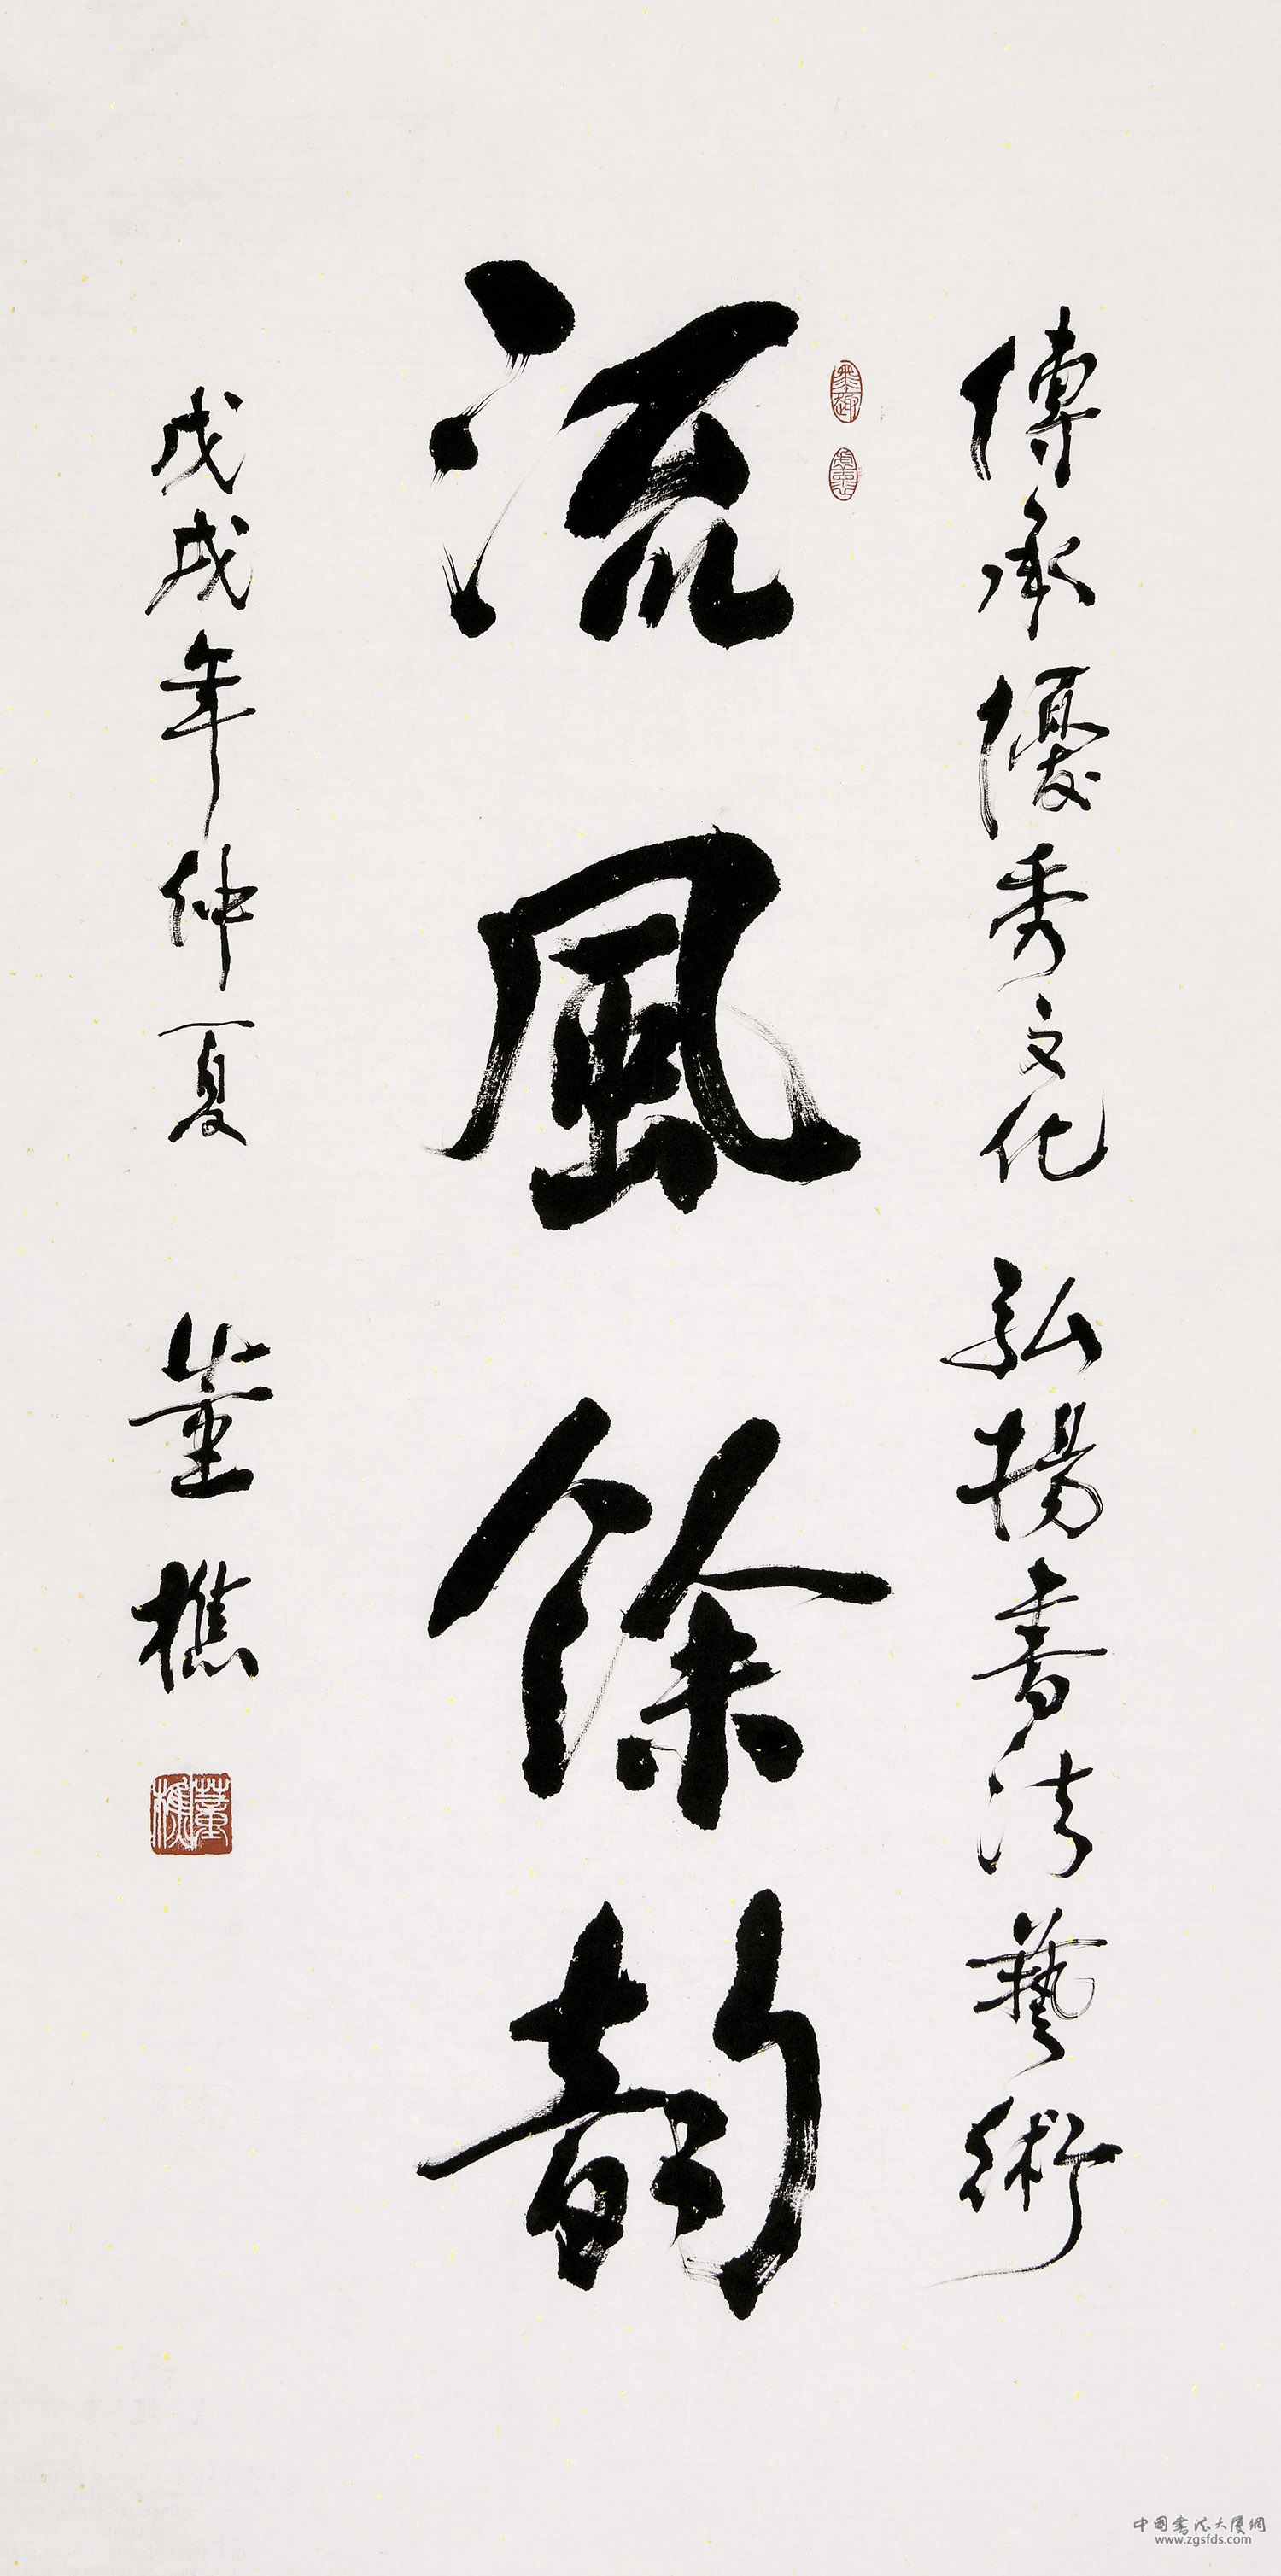 傳承優秀文化 弘揚書法藝術
流風餘韵
戊戌年仲夏 董樵
董樵
中国書法大厦網
www.zgsfds.com